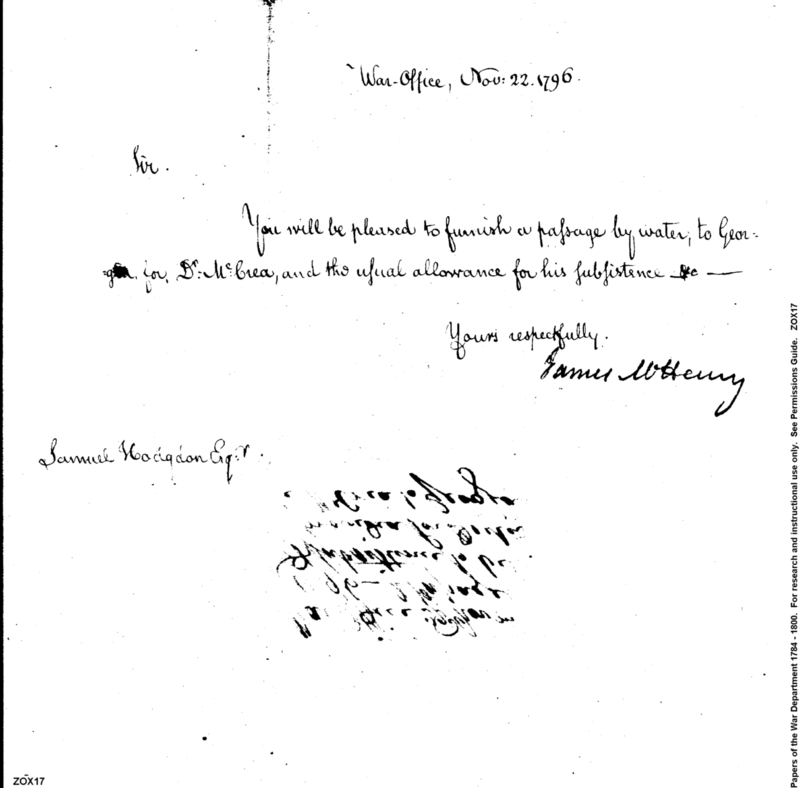 War-Office, Nov: 22. 1796.
Sir.
You will be pleased to furnish a passage by water, to Geor=
=gia, for, Dr: McCrea, and the usual allowance for his subsistence &c —
Yours respectfully.
James McHenry
Samuel Hodgdon Esqr.
Papers of the War Department 1784 - 1800. For research and instructional use only. See Permissions Guide. ZOX17
ZOX17